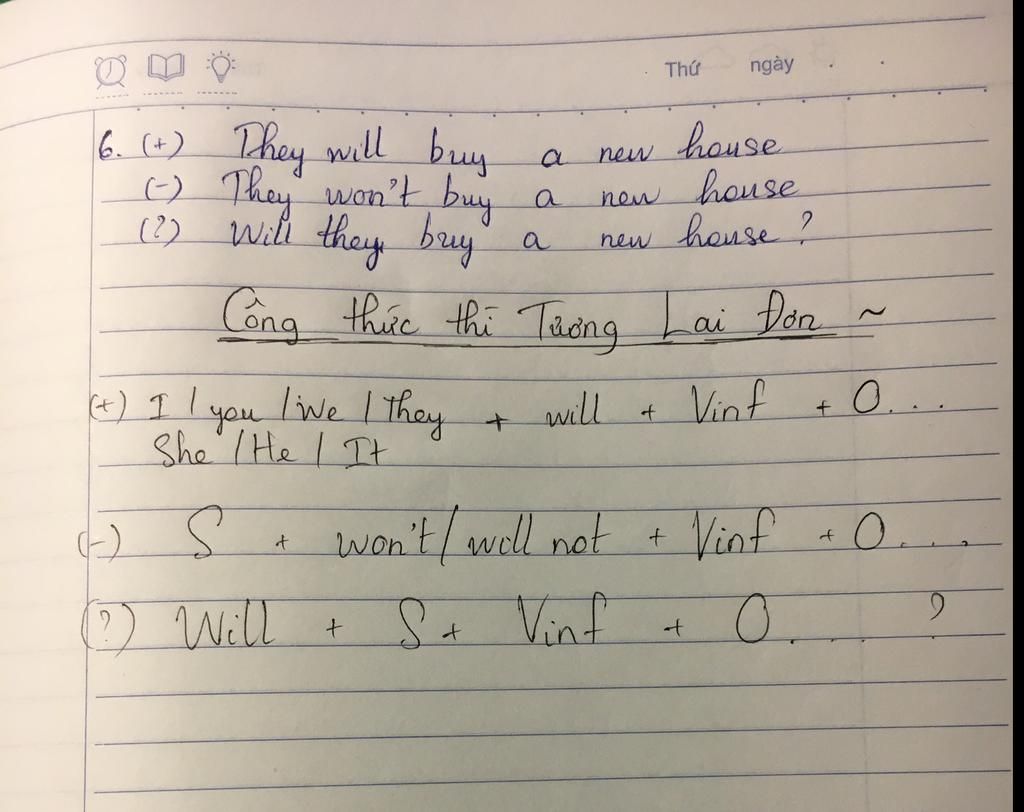 Thứ ngày
6. (+) They will buy a new house
(-) They won't buy a new house
(?) Will they buy a new house?
Công thức thì Tương Lai Đơn ~
(+) I / you / We / They + will + Vinf + O...
She / He / It
(-) S + won't / will not + Vinf + O....
(?) Will + S + Vinf + O.... ?